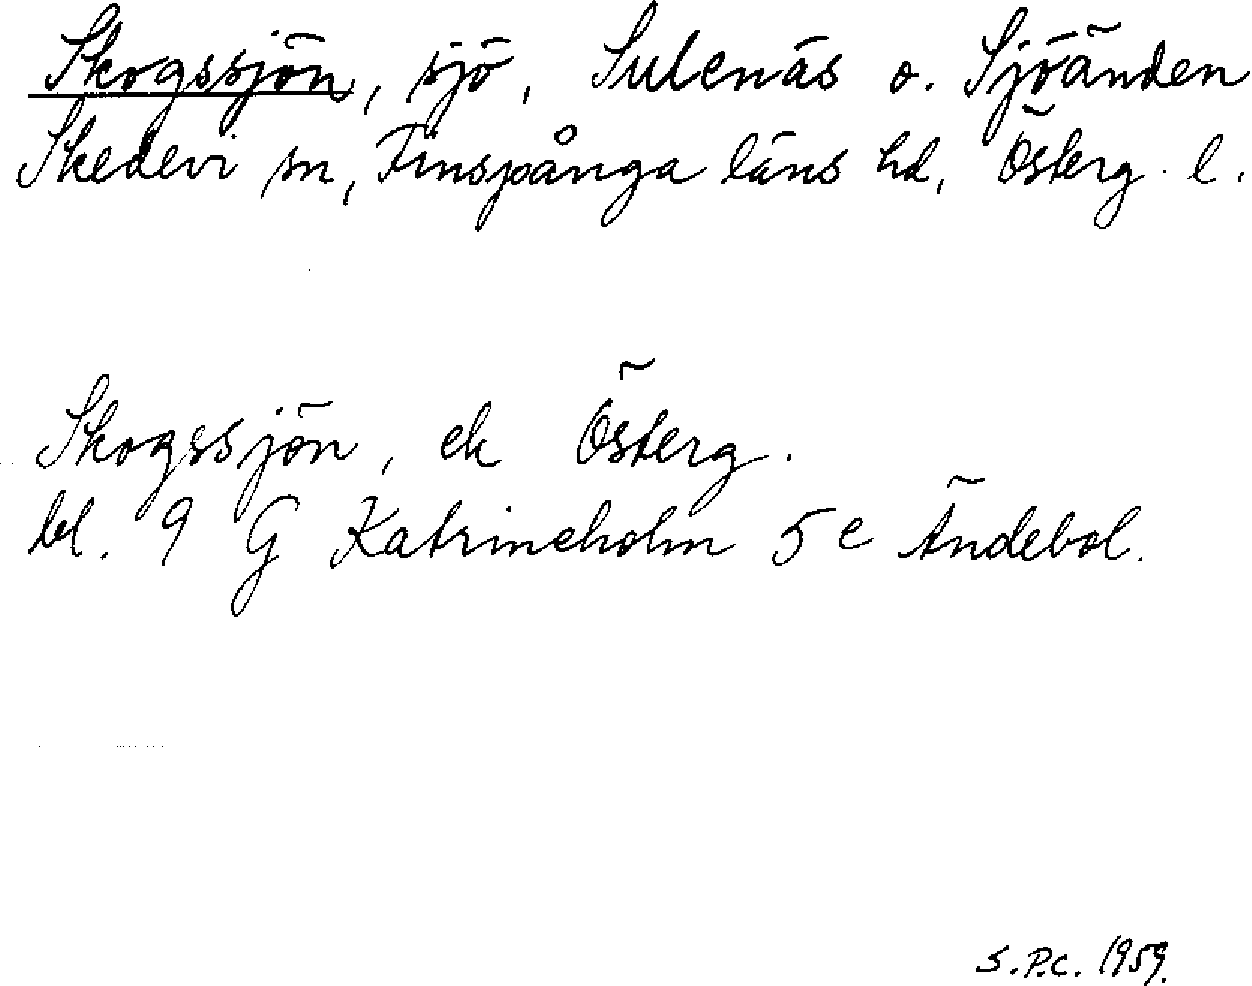 Skogssjön, sjö, Sulenäs o. Sjöänden
Skedevi sn, Finspånga läns hd, Österg. l.
Skogssjön, ek Österg.
bl. 9 G Katrineholm 5 e Ändebol.
S.P.C. 1959.